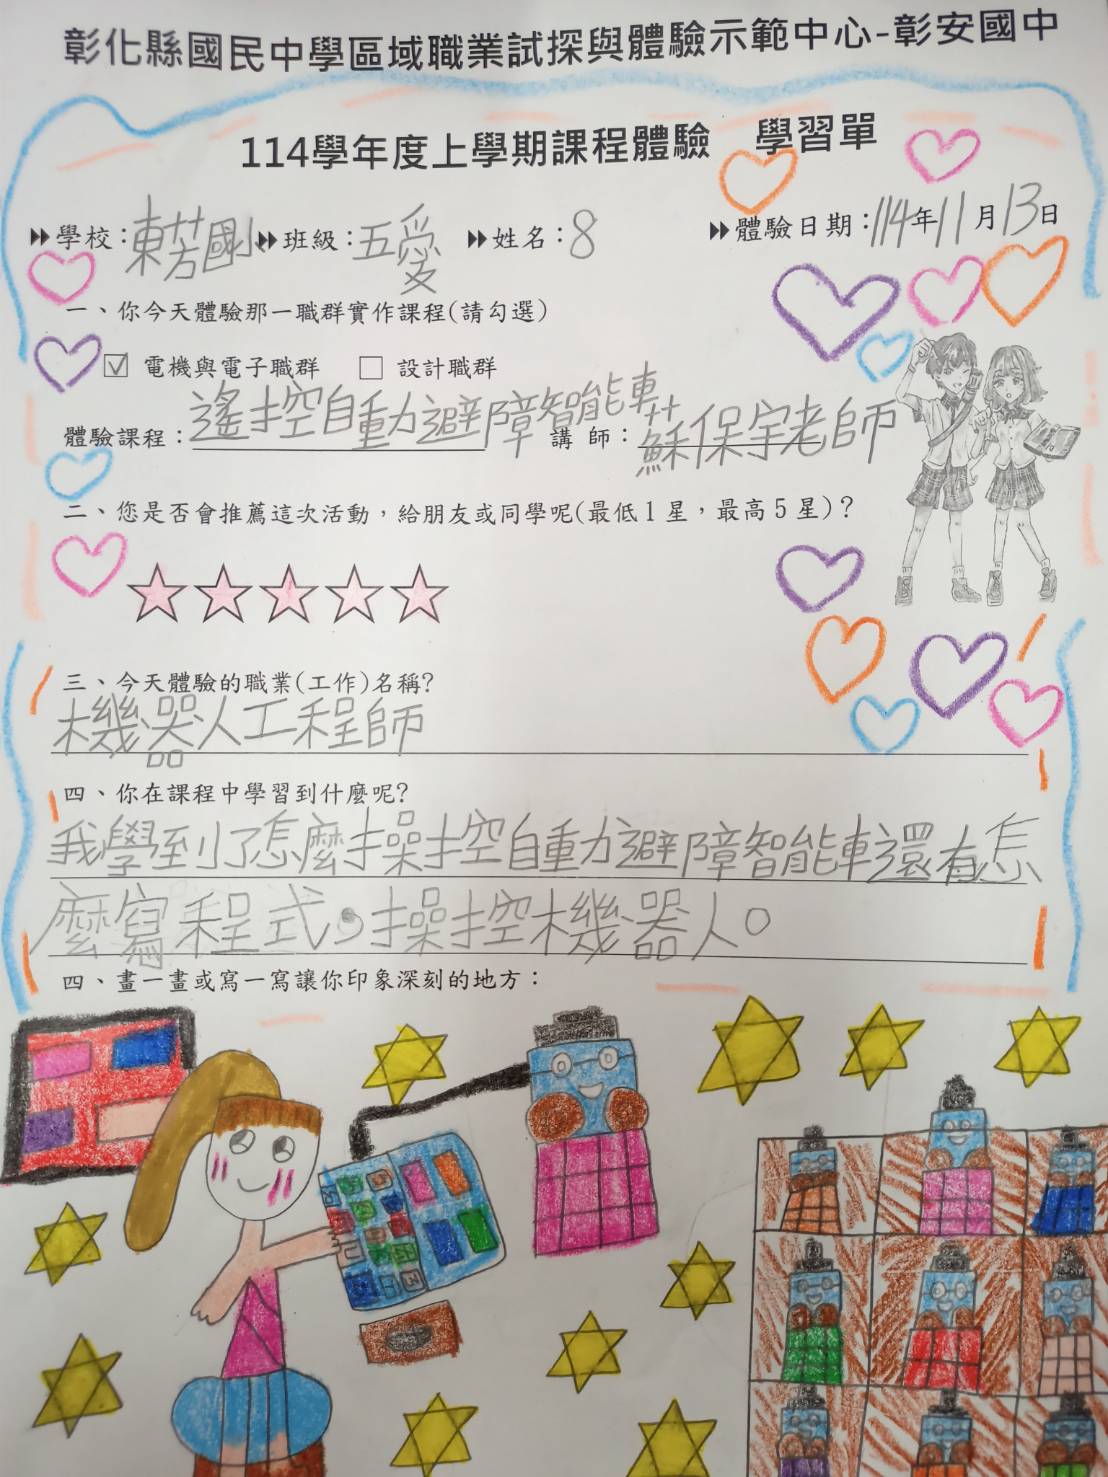 彰化縣國民中學區域職業試探與體驗示範中心-彰安國中
114學年度上學期課程體驗 學習單
學校:東芳國小 班級:五愛 姓名:8 體驗日期:114年11月13日
一、你今天體驗那一職群實作課程(請勾選)
☑ 電機與電子職群 □ 設計職群
體驗課程:遙控自動避障智能車 講師:蘇保宇老師
二、您是否會推薦這次活動,給朋友或同學呢(最低1星,最高5星)?
三、今天體驗的職業(工作)名稱?
機器人工程師
四、你在課程中學習到什麼呢?
我學到了怎麼操控自動避障智能車還有怎
麼寫程式,操控機器人。
四、畫一畫或寫一寫讓你印象深刻的地方: